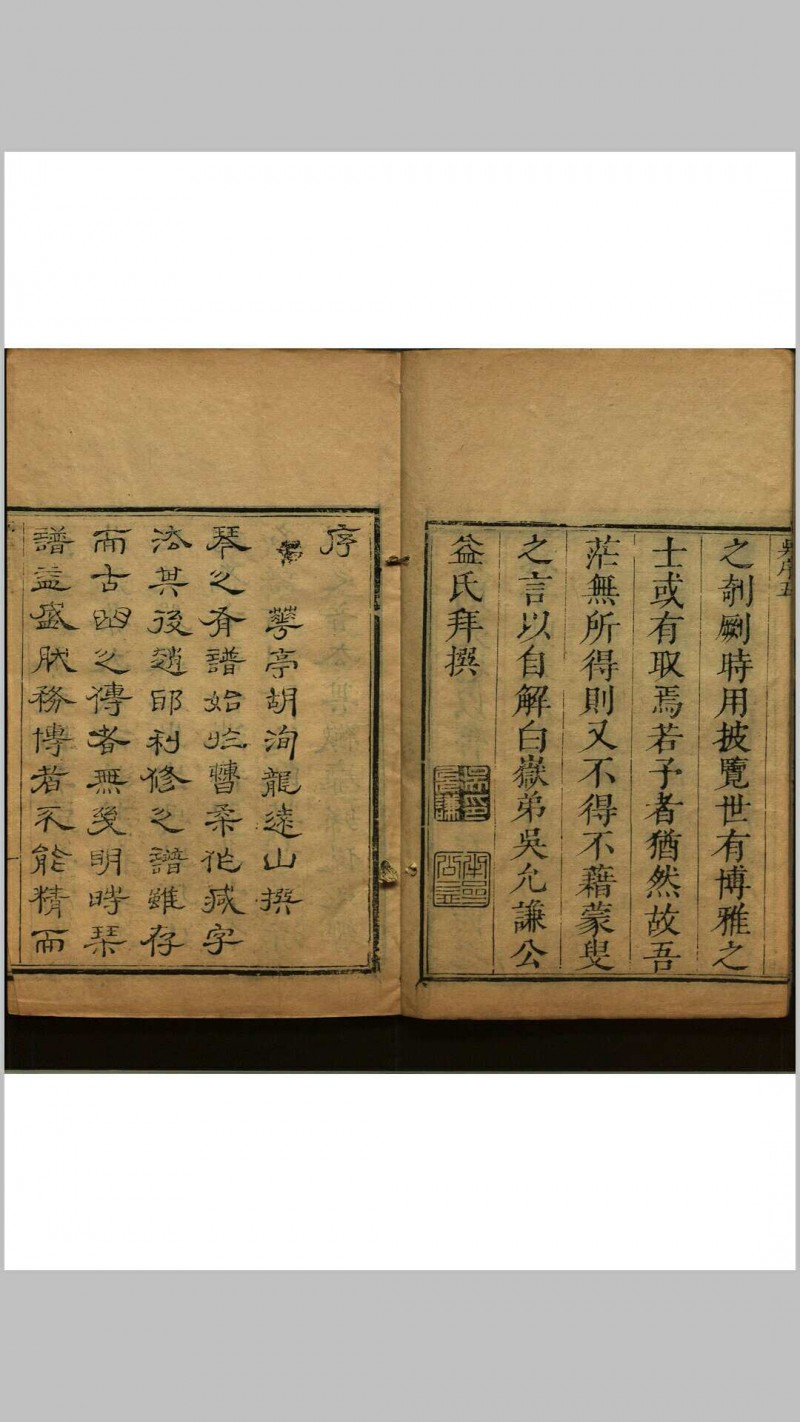 吳序五
之剞劂時用披覽世有博雅之
士或有取焉若予者猶然故吾
茫無所得則又不得不藉蒙叟
之言以自解白嶽弟吳允謙公
益氏拜撰
序
華亭胡洵龍遠山撰
琴之有譜始於曹柔作減字
法其後趙耶利修之譜雖存
而古曲之傳者無幾明時琴
譜益盛肰務博者不能精而